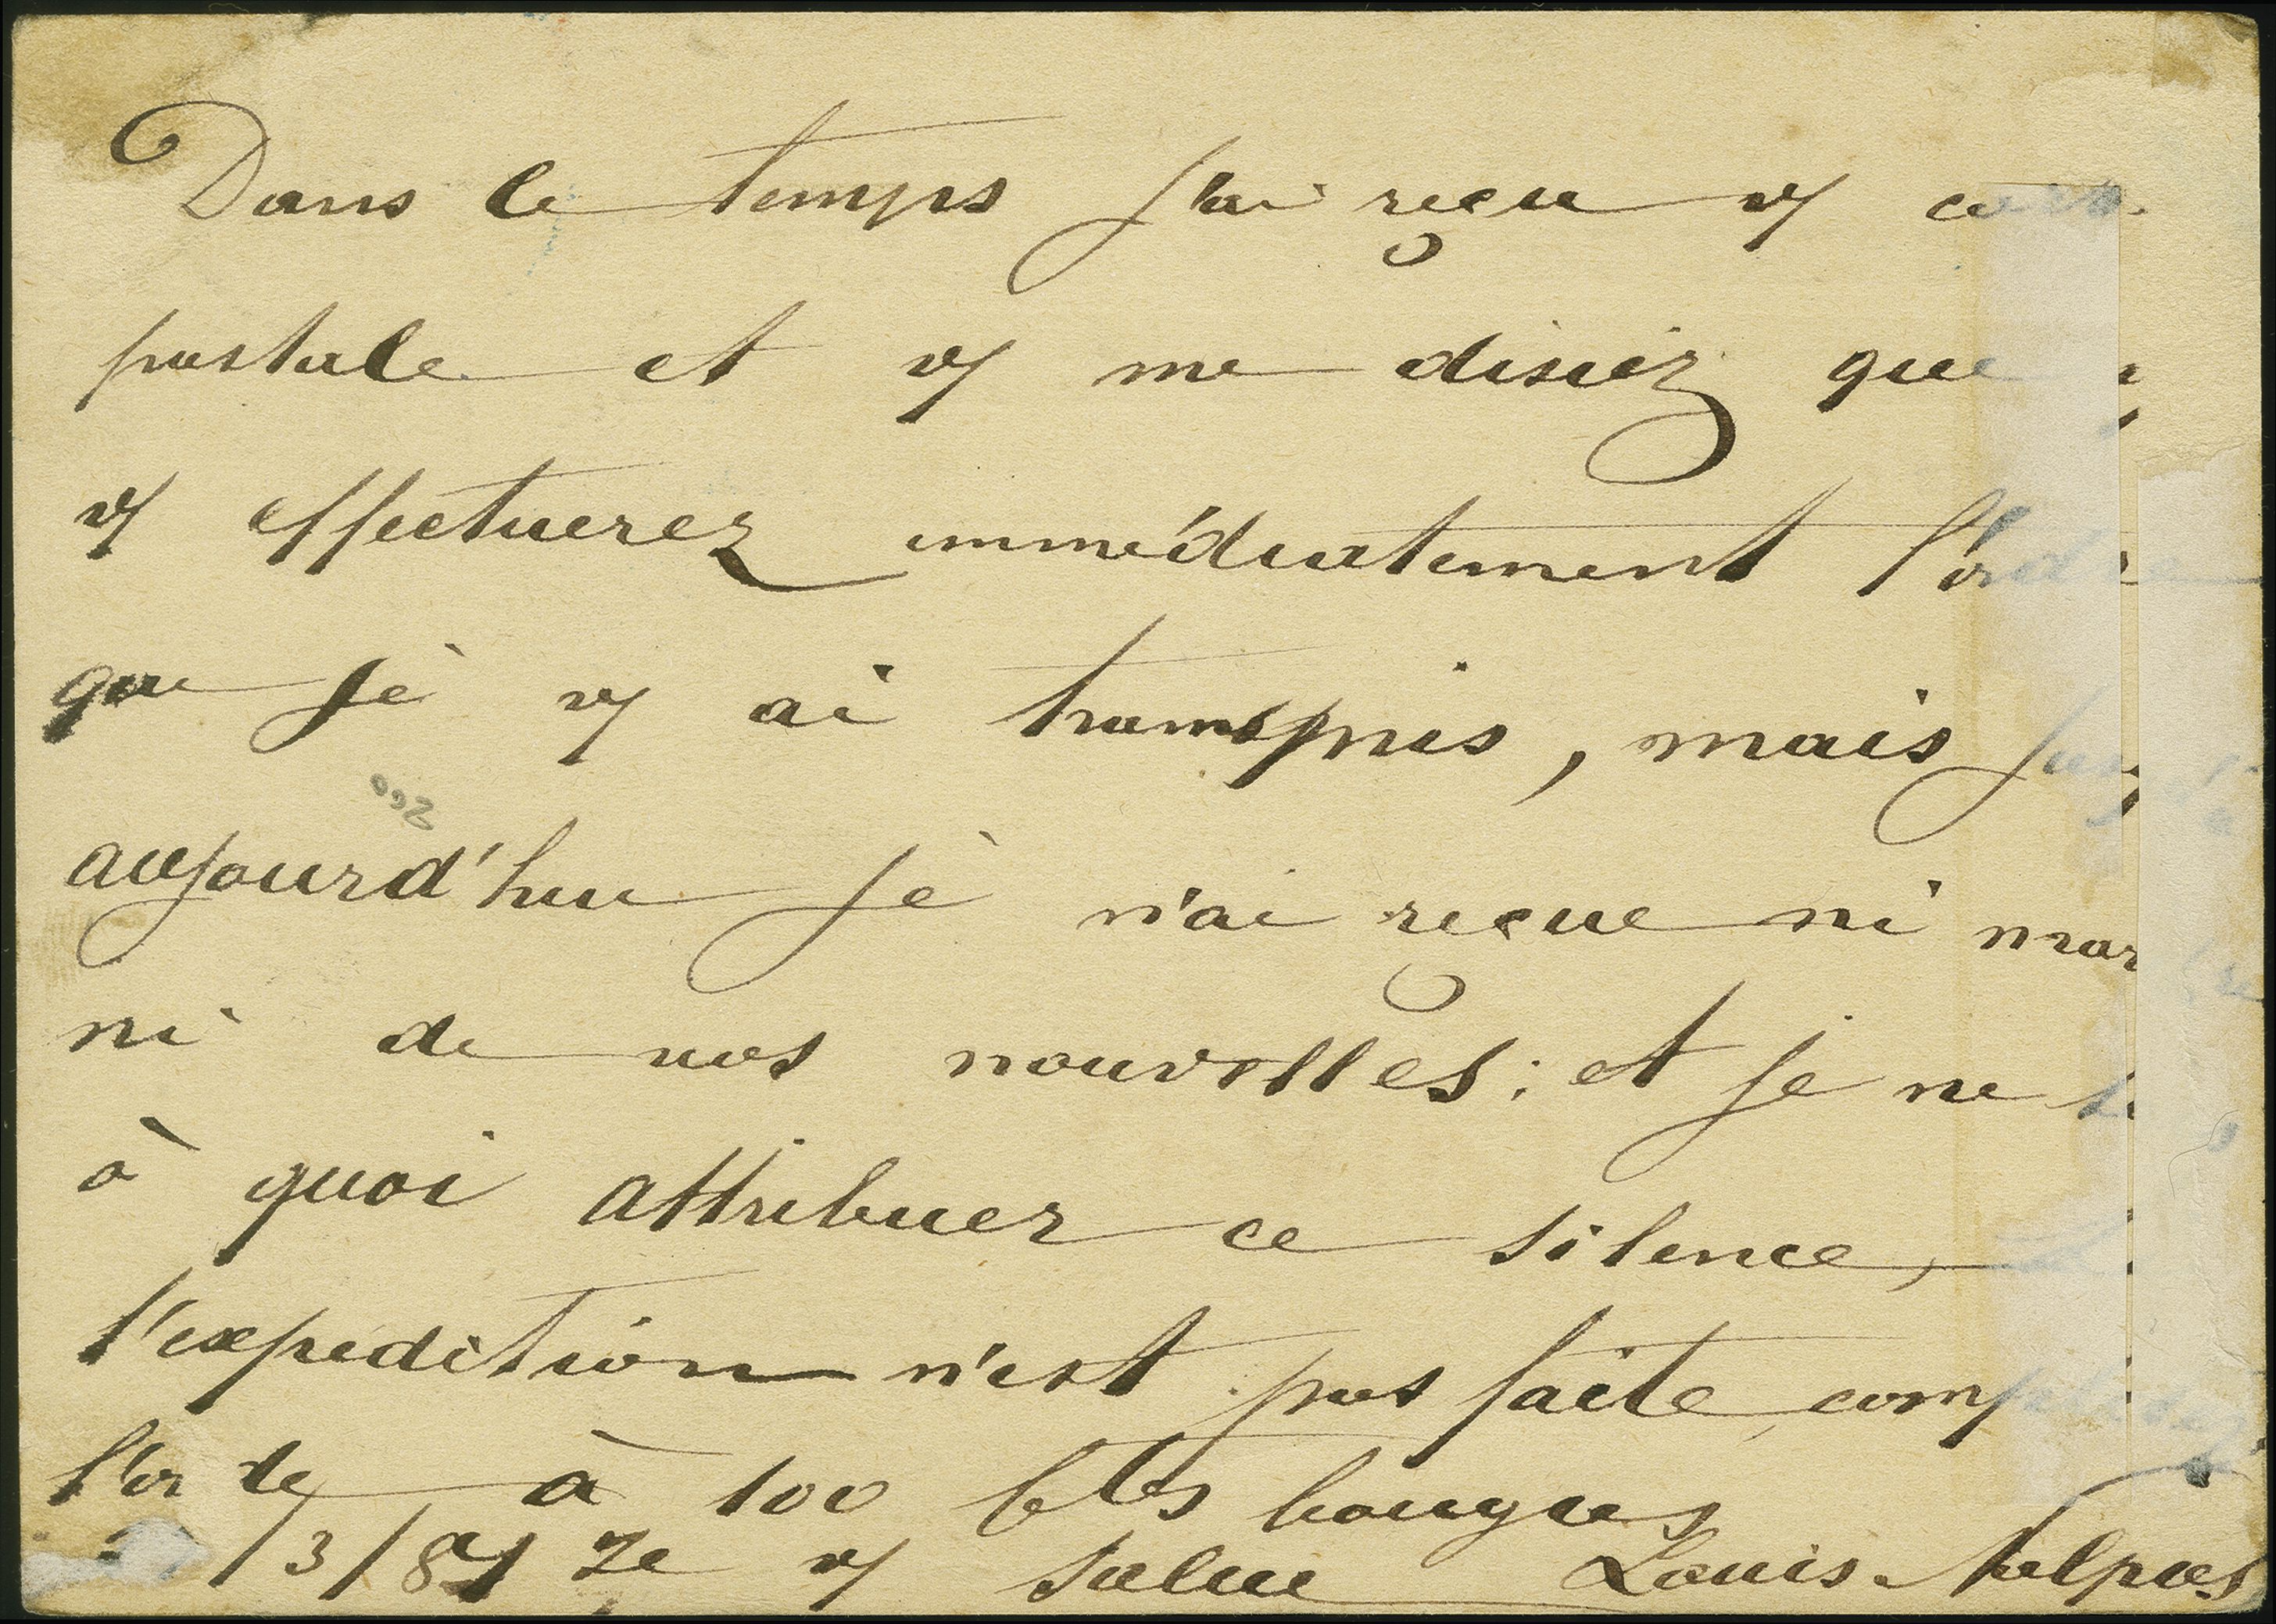 Dans le temps j'ai reçu vs carte
postale et vs me disiez que
vs effectuerez immédiatement l'ord
que je vs ai transmis, mais jusq
aujourd'hui je n'ai reçue ni mar
ni de vos nouvelles; et je ne
à quoi attribuer ce silence,
l'expedition n'est pas faite, comp
l'or de à 100 btes bougies
/3/87 Je vs salue Louis